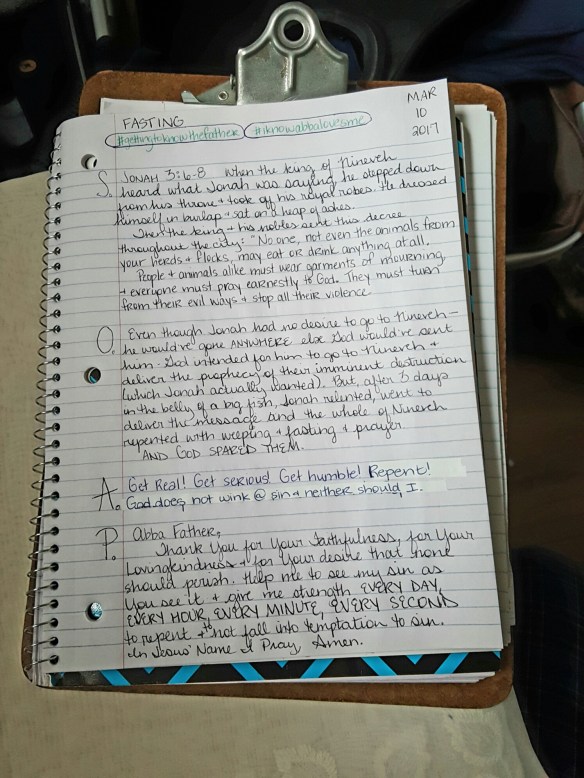 FASTING
MAR
10
2017
#gettingtoknowthefather #iknowabbalovesme
S. JONAH 3:6-8 When the king of Nineveh
heard what Jonah was saying, he stepped down
from his throne + took off his royal robes. He dressed
himself in burlap + sat on a heap of ashes.
Then the king + his nobles sent this decree
throughout the city: "No one, not even the animals from
your herds + flocks, may eat OR drink anything at all.
People + animals alike must wear garments of mourning,
+ everyone must pray earnestly to God. They must turn
from their evil ways + stop all their violence.
O. Even though Jonah had no desire to go to Nineveh -
he would've gone ANYWHERE else God would've sent
him - God intended for him to go to Nineveh +
deliver the prophecy of their imminent destruction
(which Jonah actually wanted). But, after 3 days
in the belly of a big fish, Jonah relented, went to
deliver the message and the whole of Nineveh
repented with weeping + fasting + prayer.
AND GOD SPARED THEM.
A. Get Real! Get serious! Get humble! Repent!
God does not wink @ sin + neither should I.
P. Abba Father,
Thank You for Your faithfulness, for Your
Lovingkindness + for Your desire that none
should perish. Help me to see my sin as
You see it + give me strength EVERY DAY,
EVERY HOUR, EVERY MINUTE, EVERY SECOND
to repent + to not fall into temptation to sin.
In Jesus' Name I Pray, Amen.